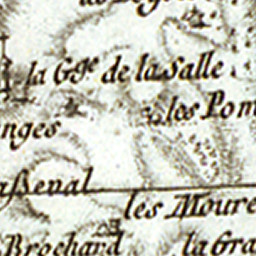 la Gge de la Salle
les Pom
nges
asseval
les Moure
Brochard
la Gra